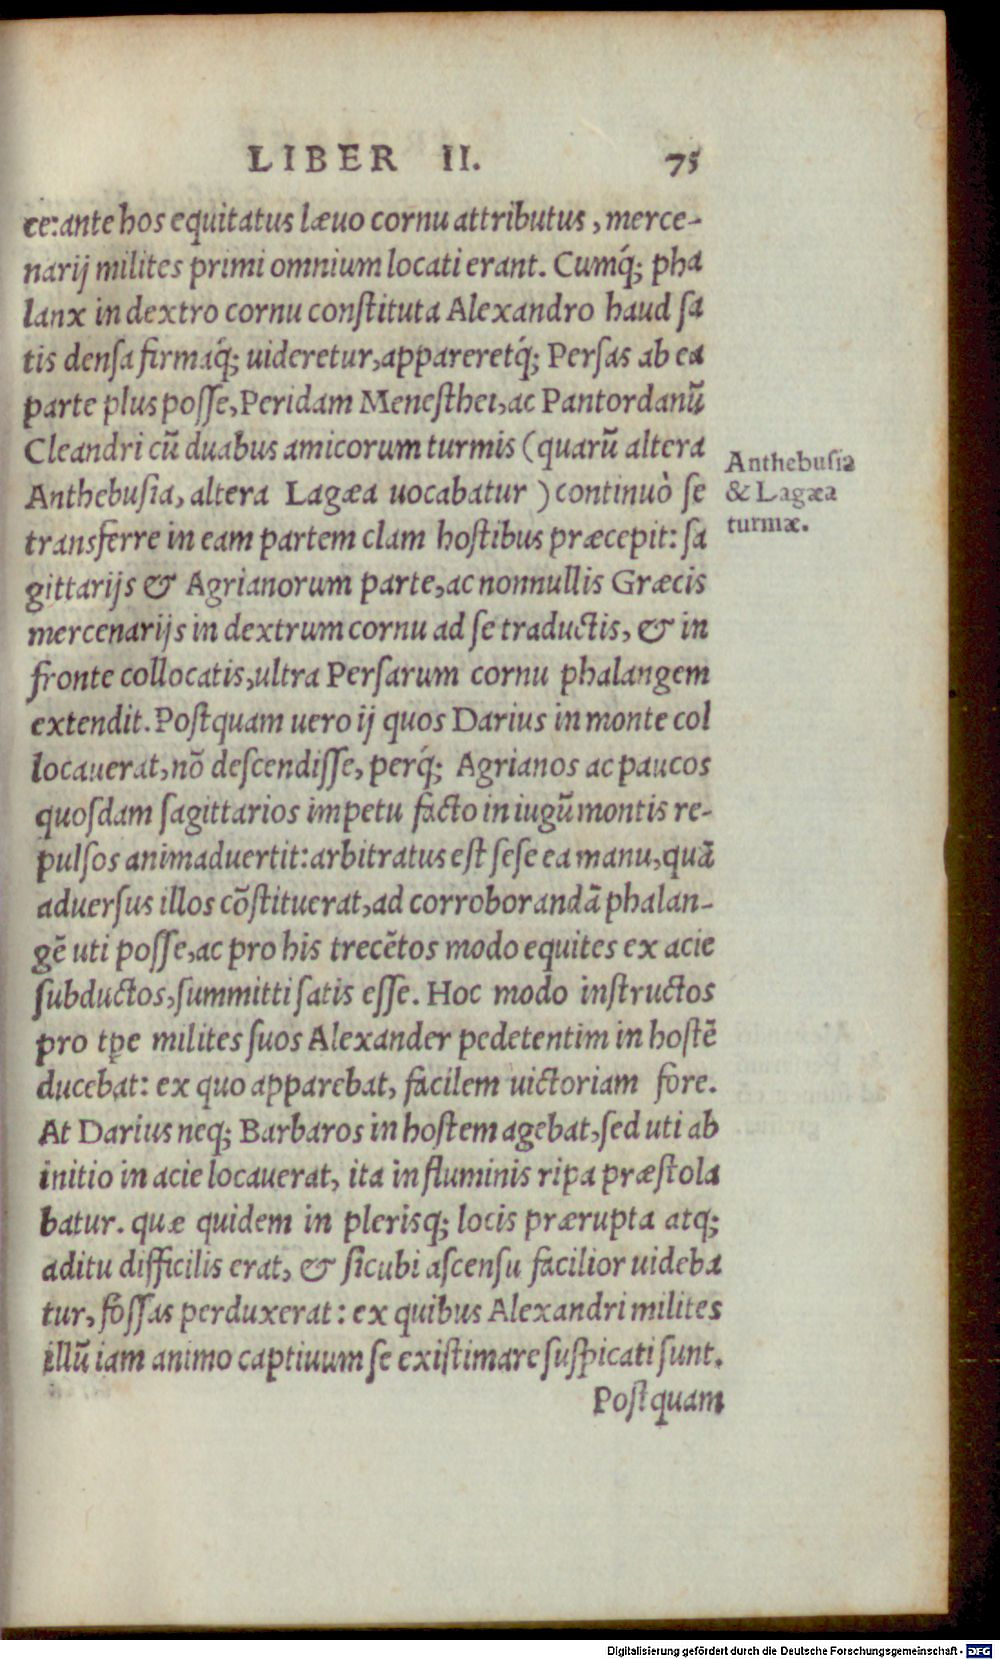 LIBER II. 75
ce: ante hos equitatus læuo cornu attributus, merce-
narij milites primi omnium locati erant. Cumq́; pha
lanx in dextro cornu conſtituta Alexandro haud ſa
tis denſa firmaq́; uideretur, appareretq́; Perſas ab ea
parte plus poſſe, Peridam Meneſthei, ac Pantordanū
Cleandri cū duabus amicorum turmis (quarū altera
Anthebuſia, altera Lagæa uocabatur) continuò ſe
transferre in eam partem clam hoſtibus præcepit: ſa
gittarijs & Agrianorum parte, ac nonnullis Græcis
mercenarijs in dextrum cornu ad ſe traductis, & in
fronte collocatis, ultra Perſarum cornu phalangem
extendit. Poſtquam uero ij quos Darius in monte col
locauerat, nō deſcendiſſe, perq́; Agrianos ac paucos
quoſdam ſagittarios impetu facto in iugū montis re-
pulſos animaduertit: arbitratus eſt ſeſe ea manu, quā
aduerſus illos cōſtituerat, ad corroborandā phalan-
gē uti poſſe, ac pro his trecētos modo equites ex acie
ſubductos, ſummitti ſatis eſſe. Hoc modo inſtructos
pro tp̱e milites ſuos Alexander pedetentim in hoſtē
ducebat: ex quo apparebat, facilem uictoriam fore.
At Darius neq; Barbaros in hoſtem agebat, ſed uti ab
initio in acie locauerat, ita in fluminis ripa præſtola
batur. quæ quidem in plerisq; locis prærupta atq;
aditu difficilis erat, & ſicubi aſcenſu facilior uideba
tur, foſſas perduxerat: ex quibus Alexandri milites
illū iam animo captiuum ſe exiſtimare ſuſpicati ſunt.
Poſtquam
Anthebuſia
& Lagæa
turmæ.
Digitalisierung gefördert durch die Deutsche Forschungsgemeinschaft - DFG